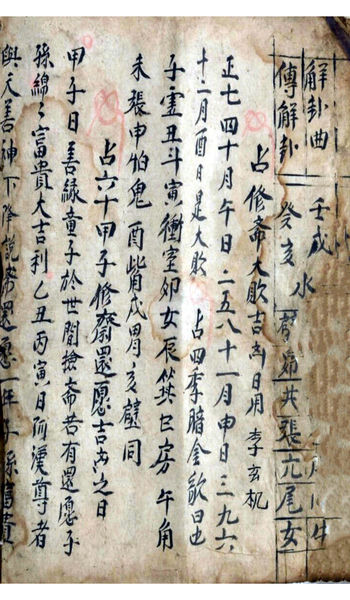 解卦曲
傳解卦
壬戌
癸亥
水
昴
共
張
亢
尾
女
占修斋大敗吉凶日用 李玄机
正七四十月午日二五八十一月申日三九六
十二月酉日是大敗 占四季暗金敨日也
子虛丑斗寅衝室卯女辰箕巳房午角
未張申怕鬼酉觜戌胃亥壁同
占六十甲子修齋還愿吉凶之日
甲子日善緣童子於世間捡斋若有還愿子
孫綿々富貴大吉利乙丑丙寅日
尊者
與天善神下降説斋還愿一件子孫富貴